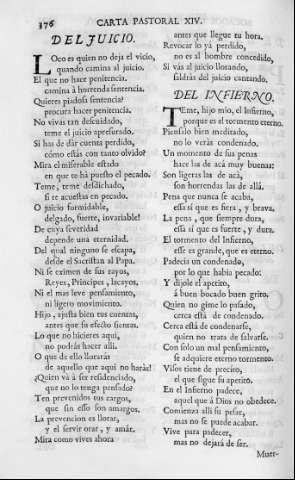 176 CARTA PASTORAL XIV.
DEL JUICIO.
LOco es quien no deja el vicio,
quando camina al juicio.
El que no hace penitencia,
camina à horrenda sentencia.
Quieres piadosa sentencia?
procura hacer penitencia.
No vivas tan descuidado,
teme el juicio apresurado.
Si has de dàr cuenta perdido,
còmo estàs con tanto olvido?
Mira el miserable estado
en que te hà puesto el pecado.
Teme, teme desdichado,
si te acuestas en pecado.
O juicio formidable,
delgado, fuerte, invariable!
De cuya severidad
depende una eternidad.
Del qual ninguno se escapa,
desde el Sacristan al Papa.
Ni se eximen de sus rayos,
Reyes, Principes, lacayos,
Ni el mas leve pensamiento,
ni ligero movimiento.
Hijo, ajusta bien tus cuentas,
antes que su efecto sientas.
Lo que no hicieres aqui,
no podràs hacer alli.
O que de ello lloraràs
de aquello que aqui no haràs!
¿Quien và à ser residenciado,
que no lo tenga pensado?
Ten prevenidos tus cargos,
que sin esso son amargos.
La prevencion es llorar,
y el servir orar, y amàr.
Mira como vives ahora
antes que llegue tu hora.
Revocar lo yà perdido,
no es al hombre concedido,
Si vàs al juicio llorando,
saldràs del juicio cantando.
DEL INFIERNO.
TEme, hijo mio, el Infierno,
porque es el tormento eterno.
Piensalo bien meditado,
no lo veràs condenado.
Un momento de sus penas
hace las de acà muy buenas:
Son ligeras las de acà,
son horrendas las de allà.
Pena que nunca se acaba,
essa sì que es fiera, y brava.
La pena, que siempre dura,
essa sì que es fuerte, y dura.
El tormento del Infierno,
esse es grande, que es eterno.
Padecia un condenado,
por lo que habia pecado:
Y dijole el apetito,
à buen bocado buen grito.
Quien no gime lo passado,
cerca està de condenado.
Cerca està de condenarse,
quien no trata de salvarse.
Con solo un mal pensamiento,
se adquiere eterno tormento.
Visos tiene de precito,
el que sigue su apetito.
En el Infierno padece,
aquel que à Dios no obedece.
Comienza alli su pesar,
mas no se puede acabar.
Vive para padecer,
mas no dejarà de ser.
Muer-